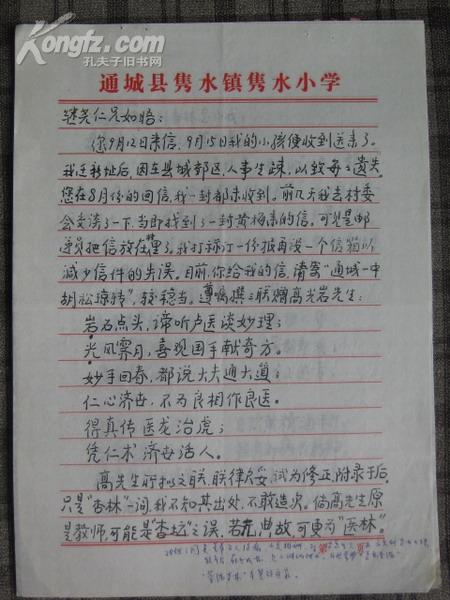 Kongfz.com
孔夫子旧书网
通城县隽水镇隽水小学
继尧仁兄如晤:
您9月12日来信,9月15日我的小孩便收到送来了。
我迁移址后,因在县城郊区,人事生疎,以致每每遗失。
您在8月份的回信,我一封都未收到。前几天我去村委
会交涉了一下,当即找到了一封黄梅来的信,可见是邮
递员把信放在那里了。我打标订一份报再设一个信箱以
减少信件的失误。目前,你给我的信,请写"通城一中
胡松琼转",较稳当。遵嘱撰三联赠高光岩先生:
岩石点头,谛听卢医谈妙理;
光风霁月,喜观国手献奇方。
妙手回春,都说大夫通大道;
仁心济世,不为良相作良医。
得真传医龙治虎;
凭仁术济世活人。
高先生所拟之联,联律欠妥,试为修正,附录于后,
只是"杏林"一词,我不知其出处,不敢造次。倘高先生原
是教师,可能是"杏坛"之误,若无典故,可更为"医林"。